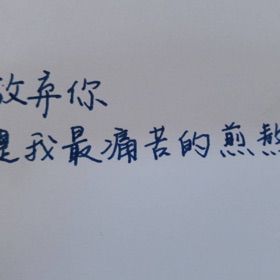 放弃你
是我最痛苦的煎熬